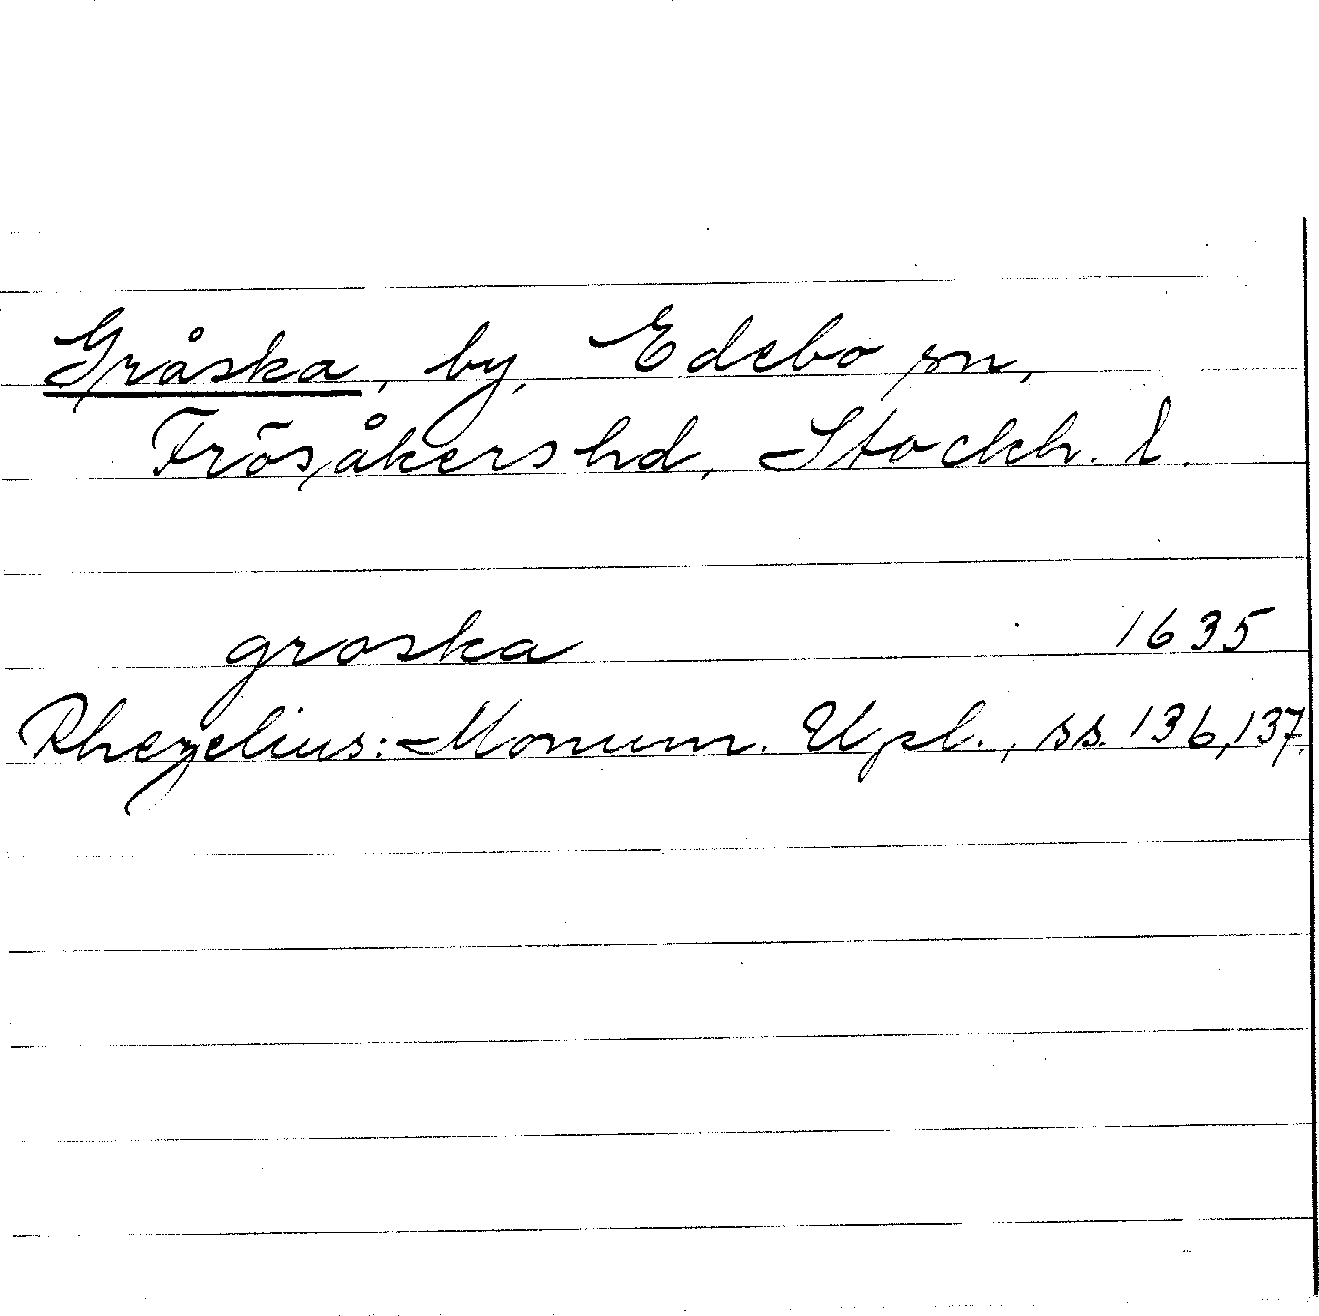 Gråska, by, Edebo sn,
Frösåkers hd, Stockh. l.
groska 1635
Rhezelius: Monum. Upl., ss. 136, 137.